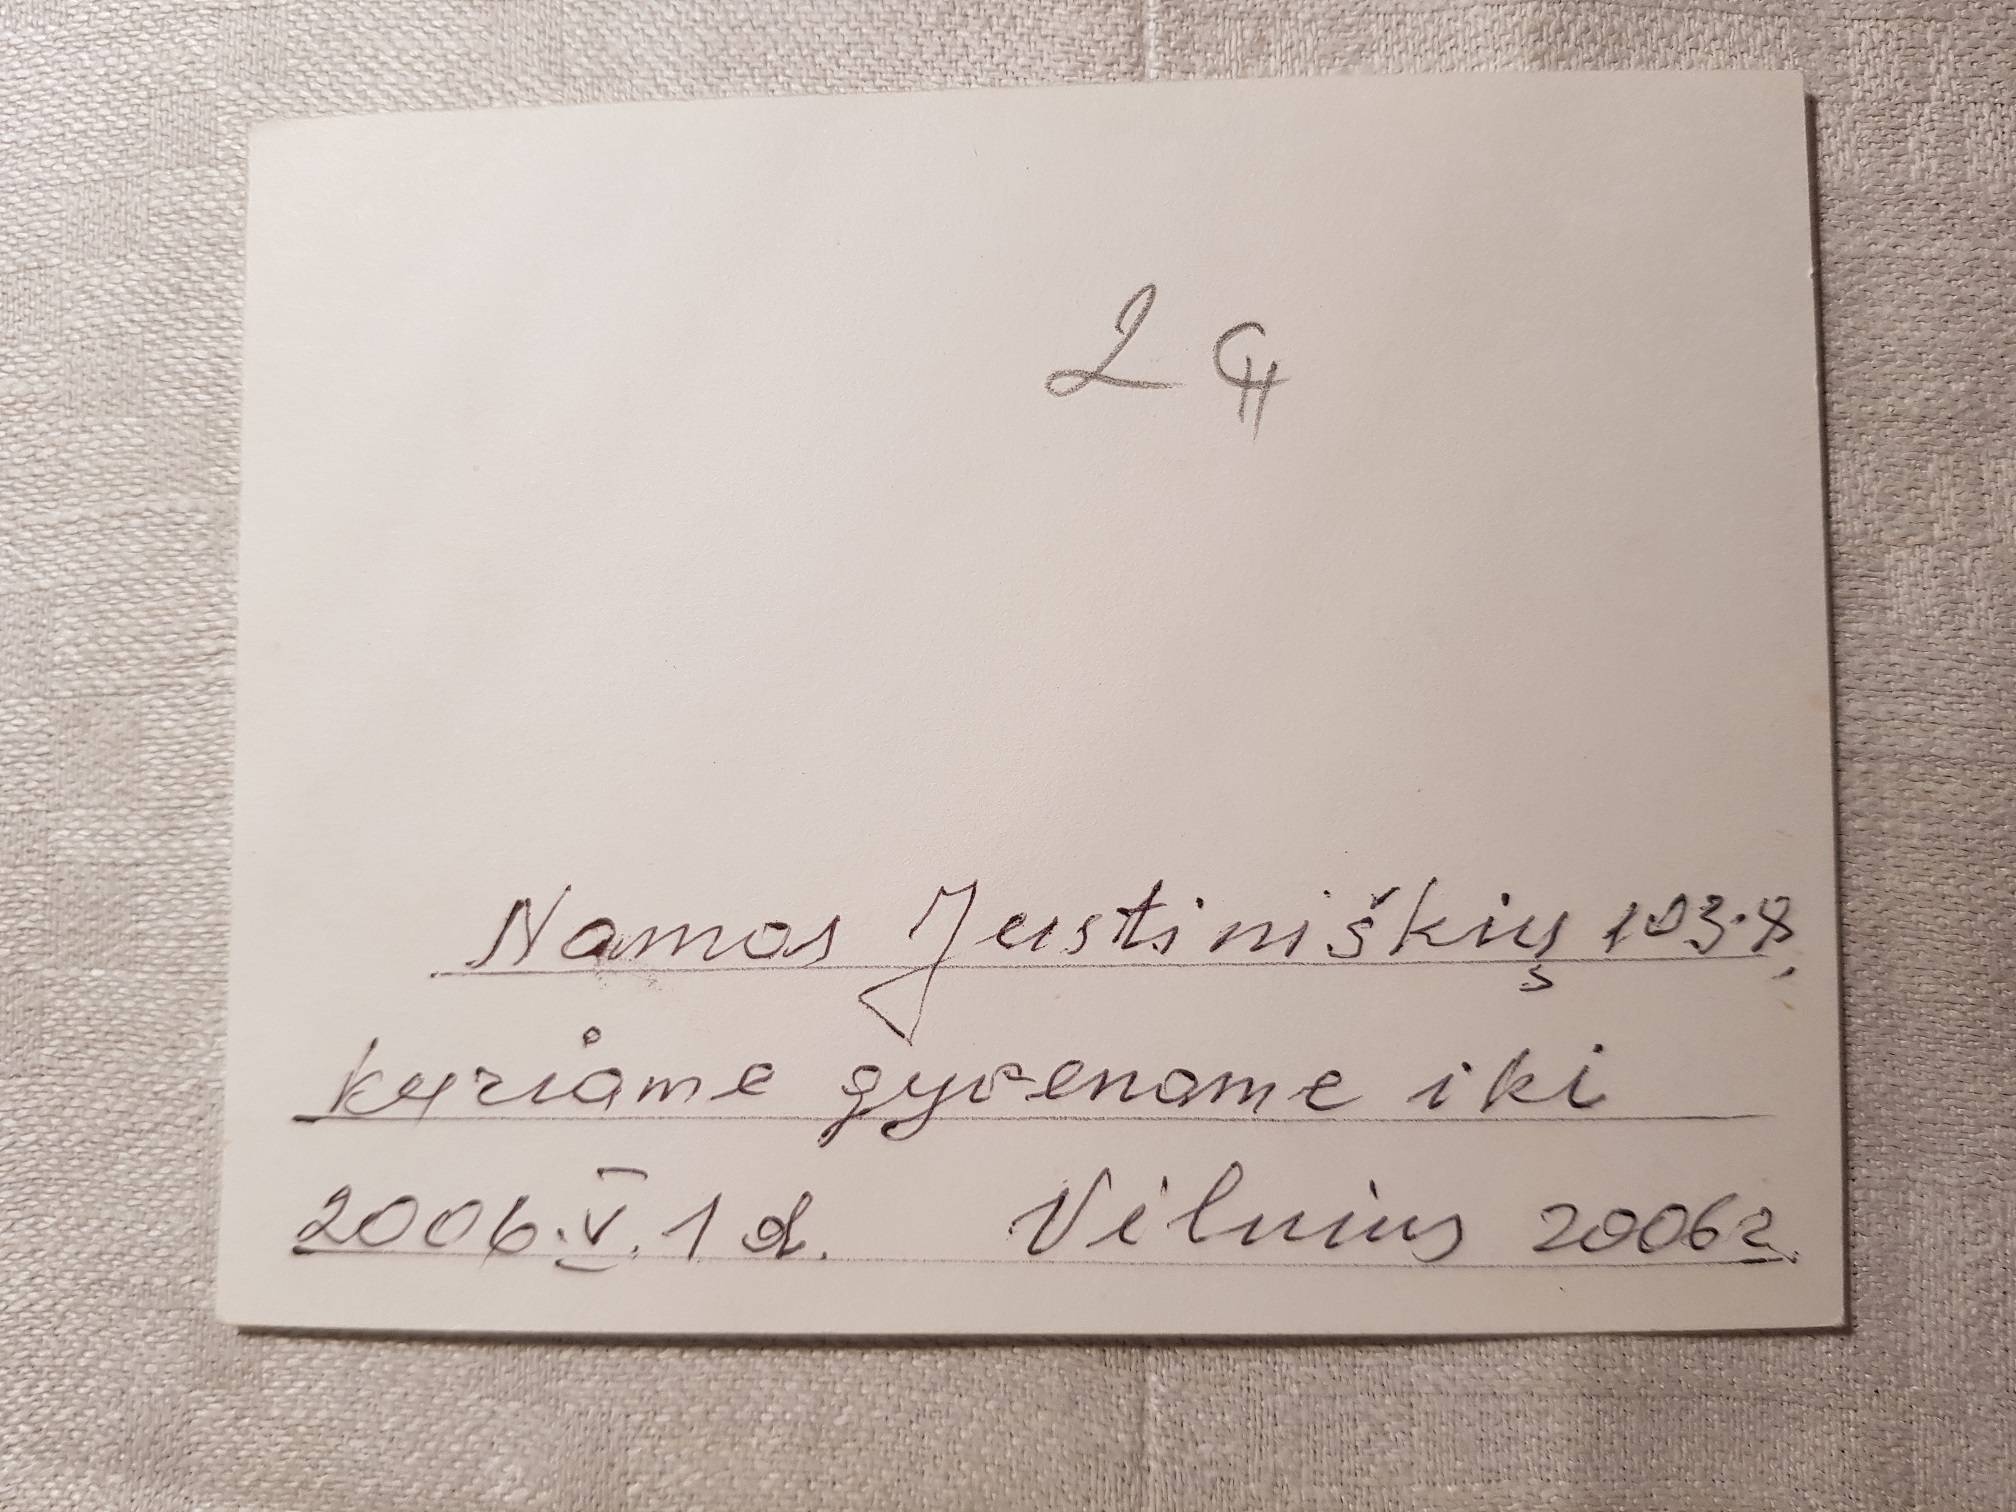 Namas Justiniškių 103-8,
kuriame gyvename iki
2006.V.1 d. Vilnius 2006 г.